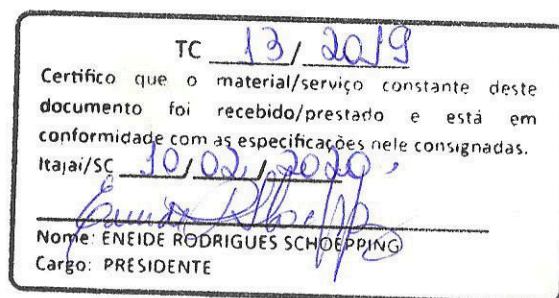 TC 13/2019
Certifico que o material/serviço constante deste
documento foi recebido/prestado e está em
conformidade com as especificações nele consignadas.
Itajaí/SC 10/02/2020,
Nome: ENEIDE RODRIGUES SCHOEPPING
Cargo: PRESIDENTE